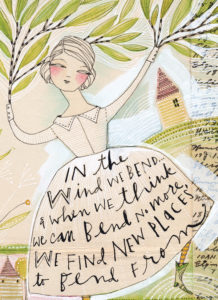 IN the
Wind WE BEND...
& when WE think
we CAN BEND NO MORE
WE FIND NEW PLACES
to BEND FROM